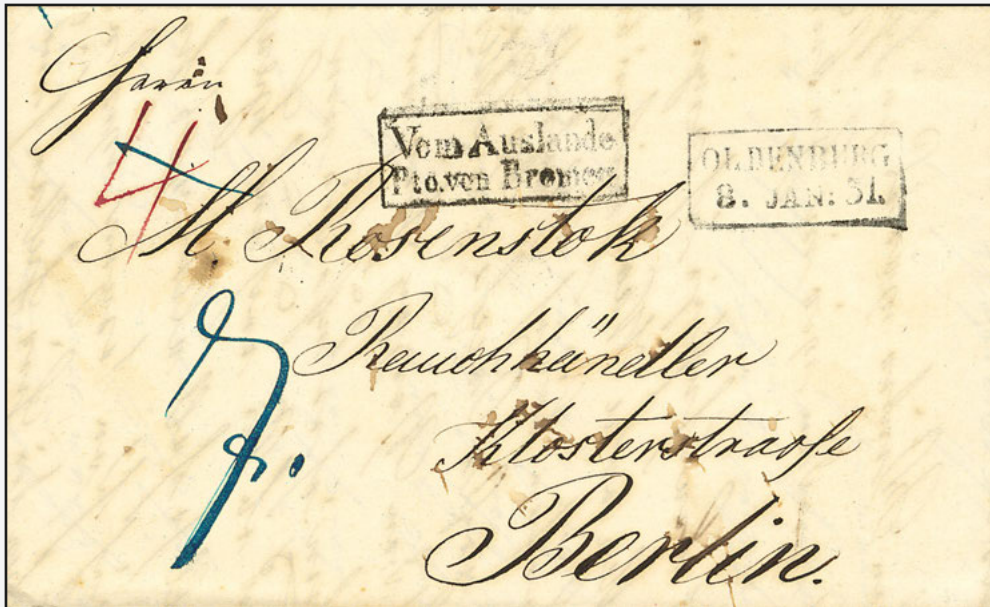 Herrn
4
Vom Auslande
Pto.von Bremen
OLDENBURG
8. JAN: 51.
M Rosenstok
Rauchhändler
Klosterstraße
Berlin.